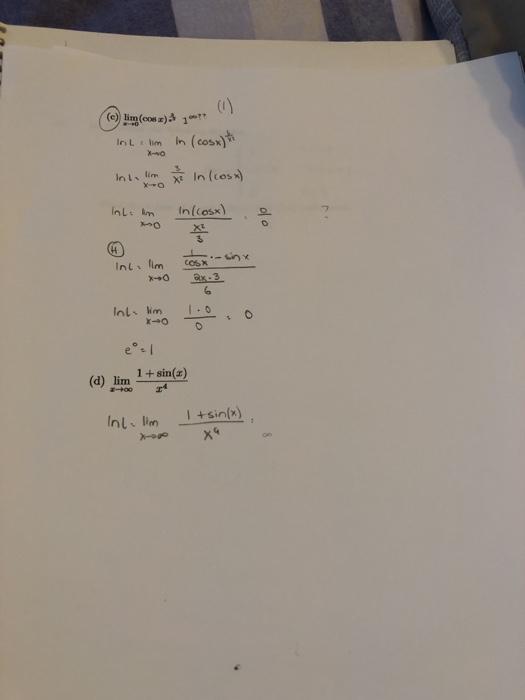 (1)
(c) lim x→0 (cos x)^(3/x²) 1^∞??
ln L = lim x→0 ln (cosx)^(3/x²)
ln L = lim x→0 3/x² ln (cosx)
ln L = lim x→0 ln(cosx) / (x²/3) = 0/0 ?
(H)
ln L = lim x→0 (1/cosx · -sinx) / (2x·3/6)
ln L = lim x→0 1·0/0 = 0
e⁰ = 1
(d) lim x→∞ (1 + sin(x)) / x⁴
ln L = lim x→∞ (1 + sin(x)) / x⁴ = ∞